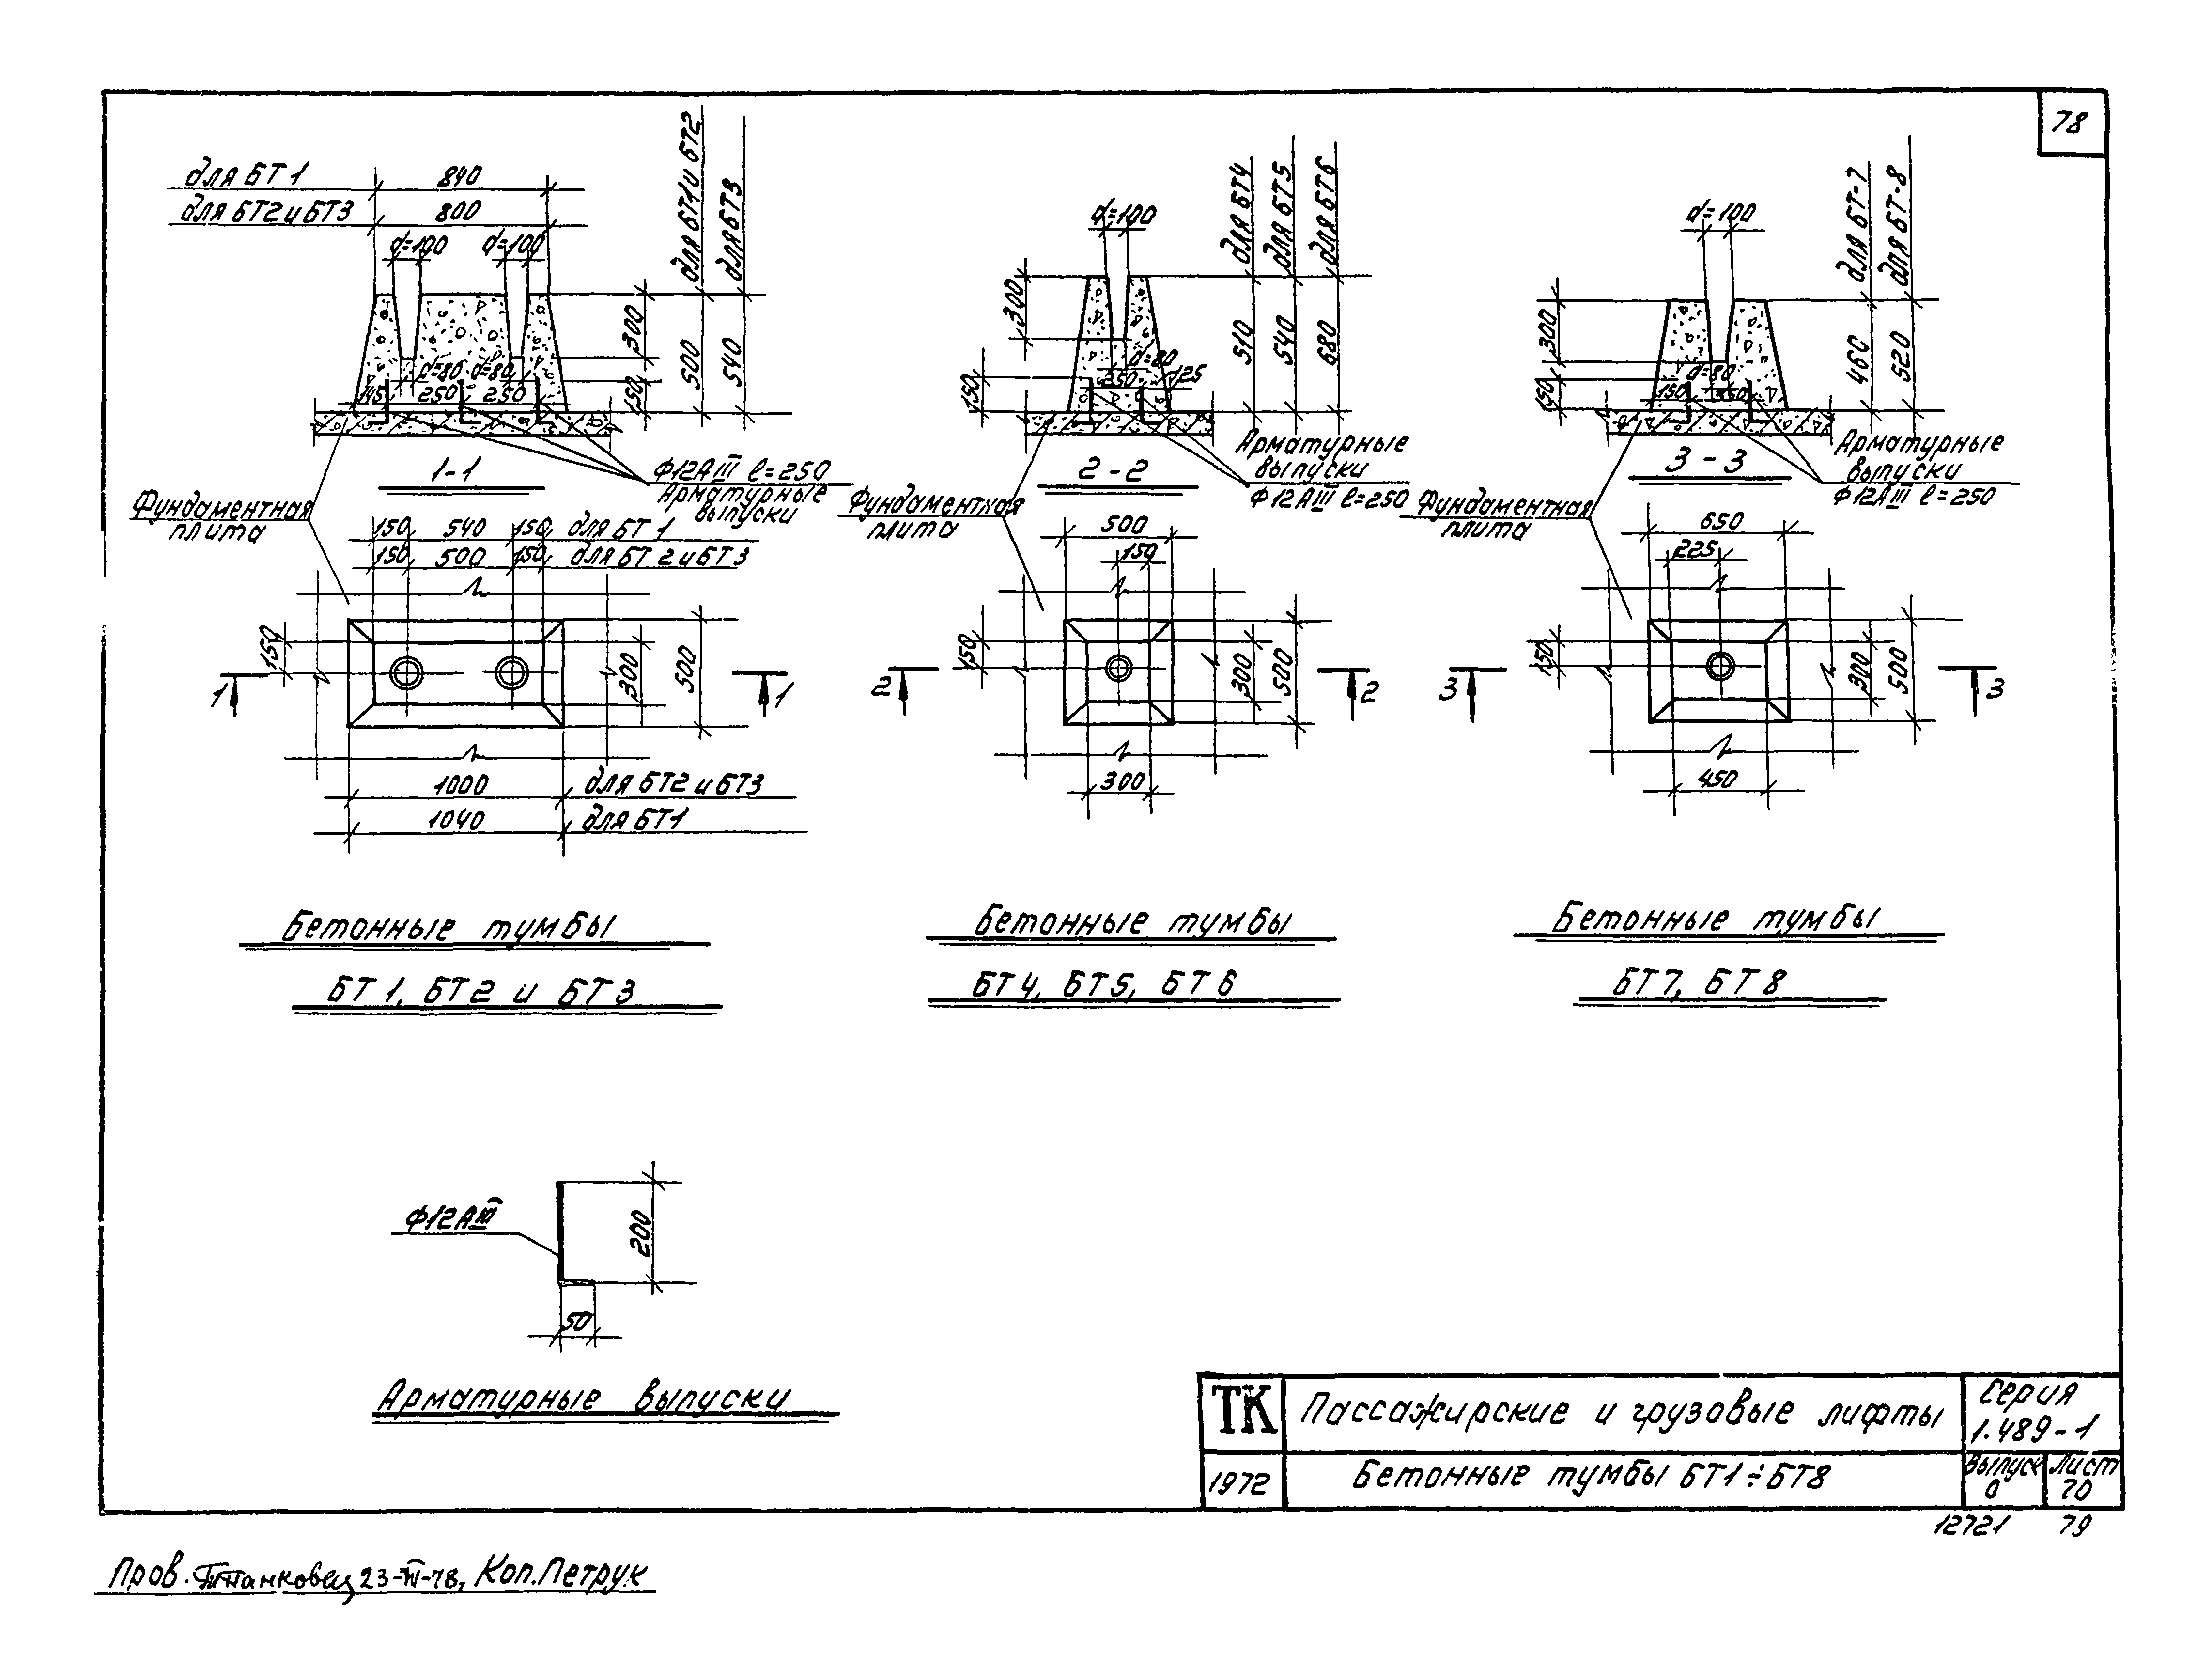 78
для БТ 1 840
для БТ2 и БТ3 800
d=100 d=100
для БТ1 и БТ2
для БТ3
300
150
500
540
d=80 d=80
145 250 250
1-1
Ф12АIII ℓ=250
Арматурные
выпуски
Фундаментная
плита
150 540 150 для БТ 1
150 500 150 для БТ 2 и БТ 3
150
300
500
1 1
1000 для БТ2 и БТ3
1040 для БТ1
Бетонные тумбы
БТ 1, БТ2 и БТ3
d=100
для БТ4
для БТ5
для БТ6
300
150
510
540
680
d=80
125
2-2
Арматурные
выпуски
Ф12АIII ℓ=250
Фундаментная
плита
500
150
150
300
500
2 2
300
Бетонные тумбы
БТ 4, БТ5, БТ 6
d=100
для БТ-7
для БТ-8
300
150
460
520
d=80
150 350
3-3
Арматурные
выпуски
Ф12АIII ℓ=250
Фундаментная
плита
650
225
150
300
500
3 3
450
Бетонные тумбы
БТ7, БТ 8
Ф12АIII
200
50
Арматурные выпуски
ТК Пассажирские и грузовые лифты
Серия
1.489-1
1972 Бетонные тумбы БТ1÷БТ8
Выпуск 0
Лист 70
12721 79
Пров. 23-III-78, Коп. Петрук